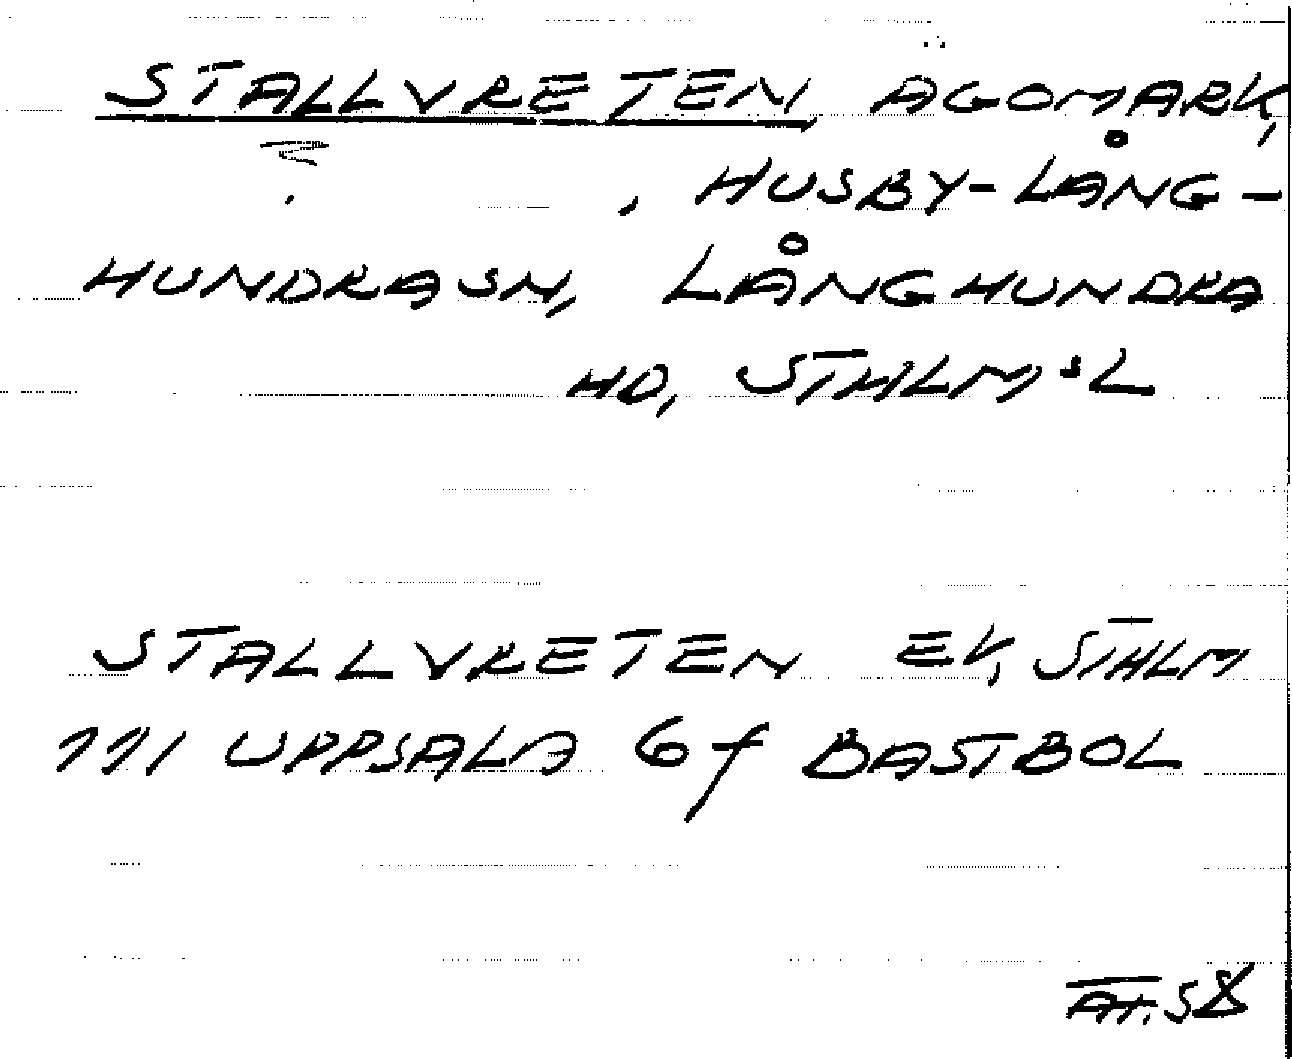 STALLVRETEN ÄGOMARK,
, HUSBY-LÅNG-
HUNDRA SN, LÅNGHUNDRA
HD, STHLM:S L
STALLVRETEN EK, STHLM
111 UPPSALA 6f BASTBOL